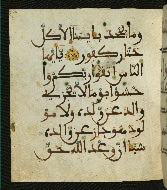 وما يجحد بايتنا الا كل
ختار كفور يايها
الناس اتقوا ربكم وا
خشوا يوما لا يجزي
والد عن ولده ولا مو
لود هو جاز عن والده
شيا ان وعد الله حق